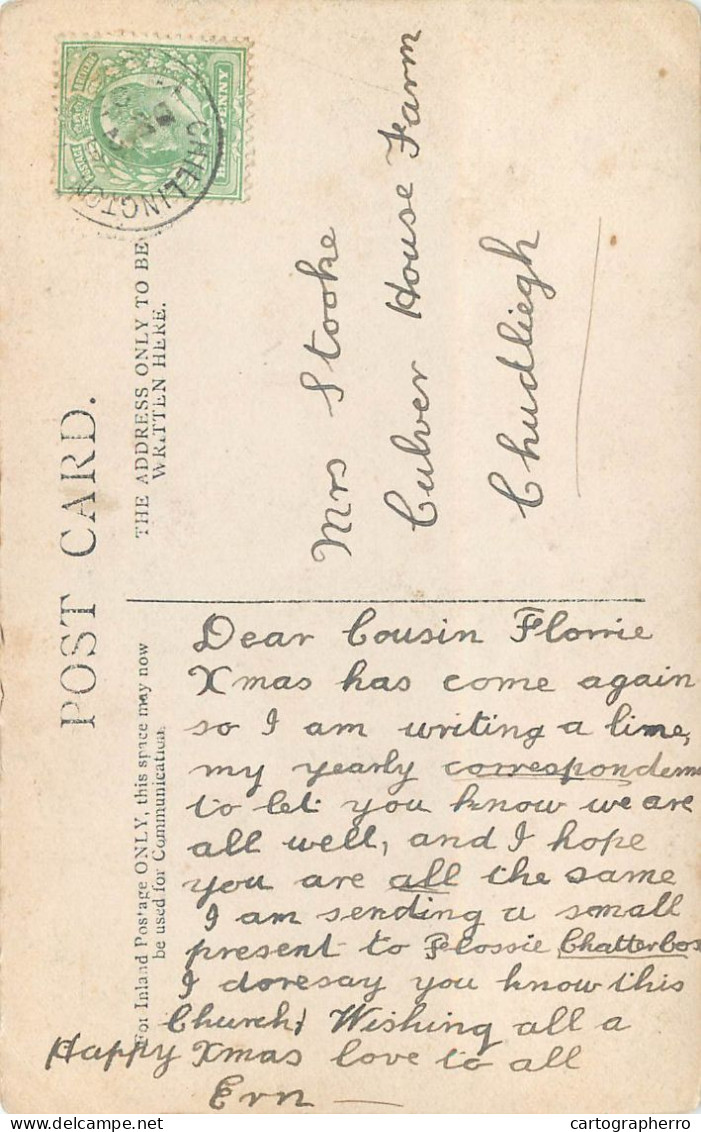 POST CARD.
THE ADDRESS ONLY TO BE
WRITTEN HERE.
For Inland Postage ONLY, this space may now
be used for Communication.
CHILLINGTON
Mrs Stooke
Culver House Farm
Chudliegh
Dear Cousin Florrie
Xmas has come again
so I am writing a line,
my yearly correspondence
to let you know we are
all well, and I hope
you are all the same
I am sending a small
present to Flossie Chatterbox
I daresay you know this
Church, Wishing all a
Happy Xmas love to all
Ern
cartographerro